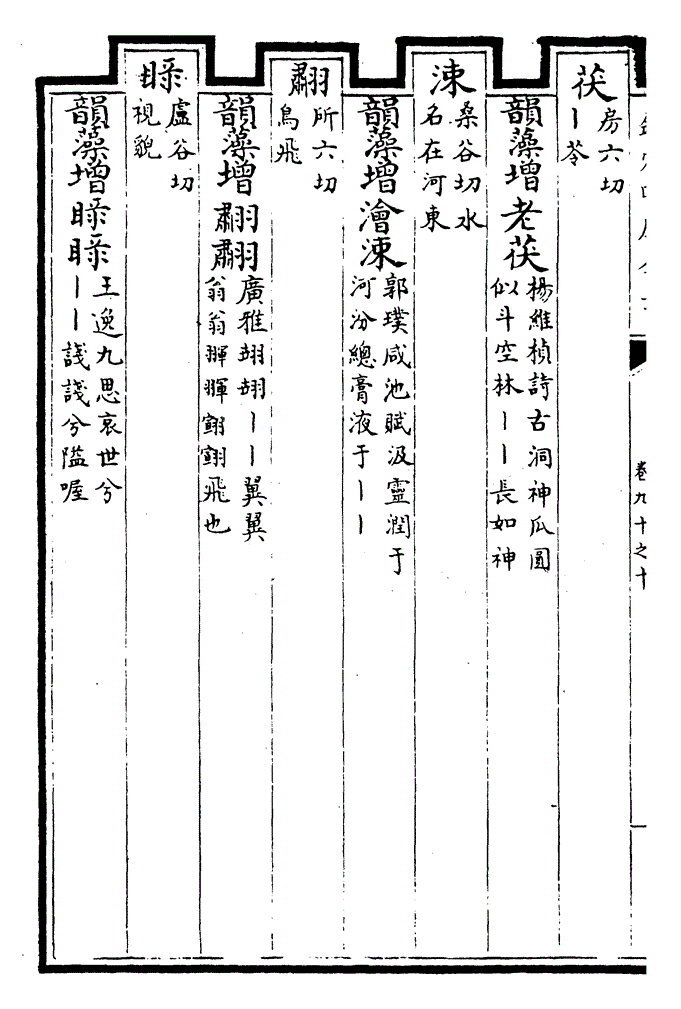 卷九十之十
茯
房六切
丨苓
韻藻增老茯
楊維楨詩古洞神瓜圓
似斗空林丨丨長如神
涑
桑谷切水
名在河東
韻藻增澮涑
郭璞咸池賦汲靈潤于
河汾總膏液于丨丨
䎘
所六切
鳥飛
韻藻增䎘䎘
廣雅翃翃丨丨翼翼
翁翁翬翬翧翧飛也
睩
盧谷切
視貌
韻藻增睩睩
王逸九思哀世兮
丨丨諓諓兮隘喔